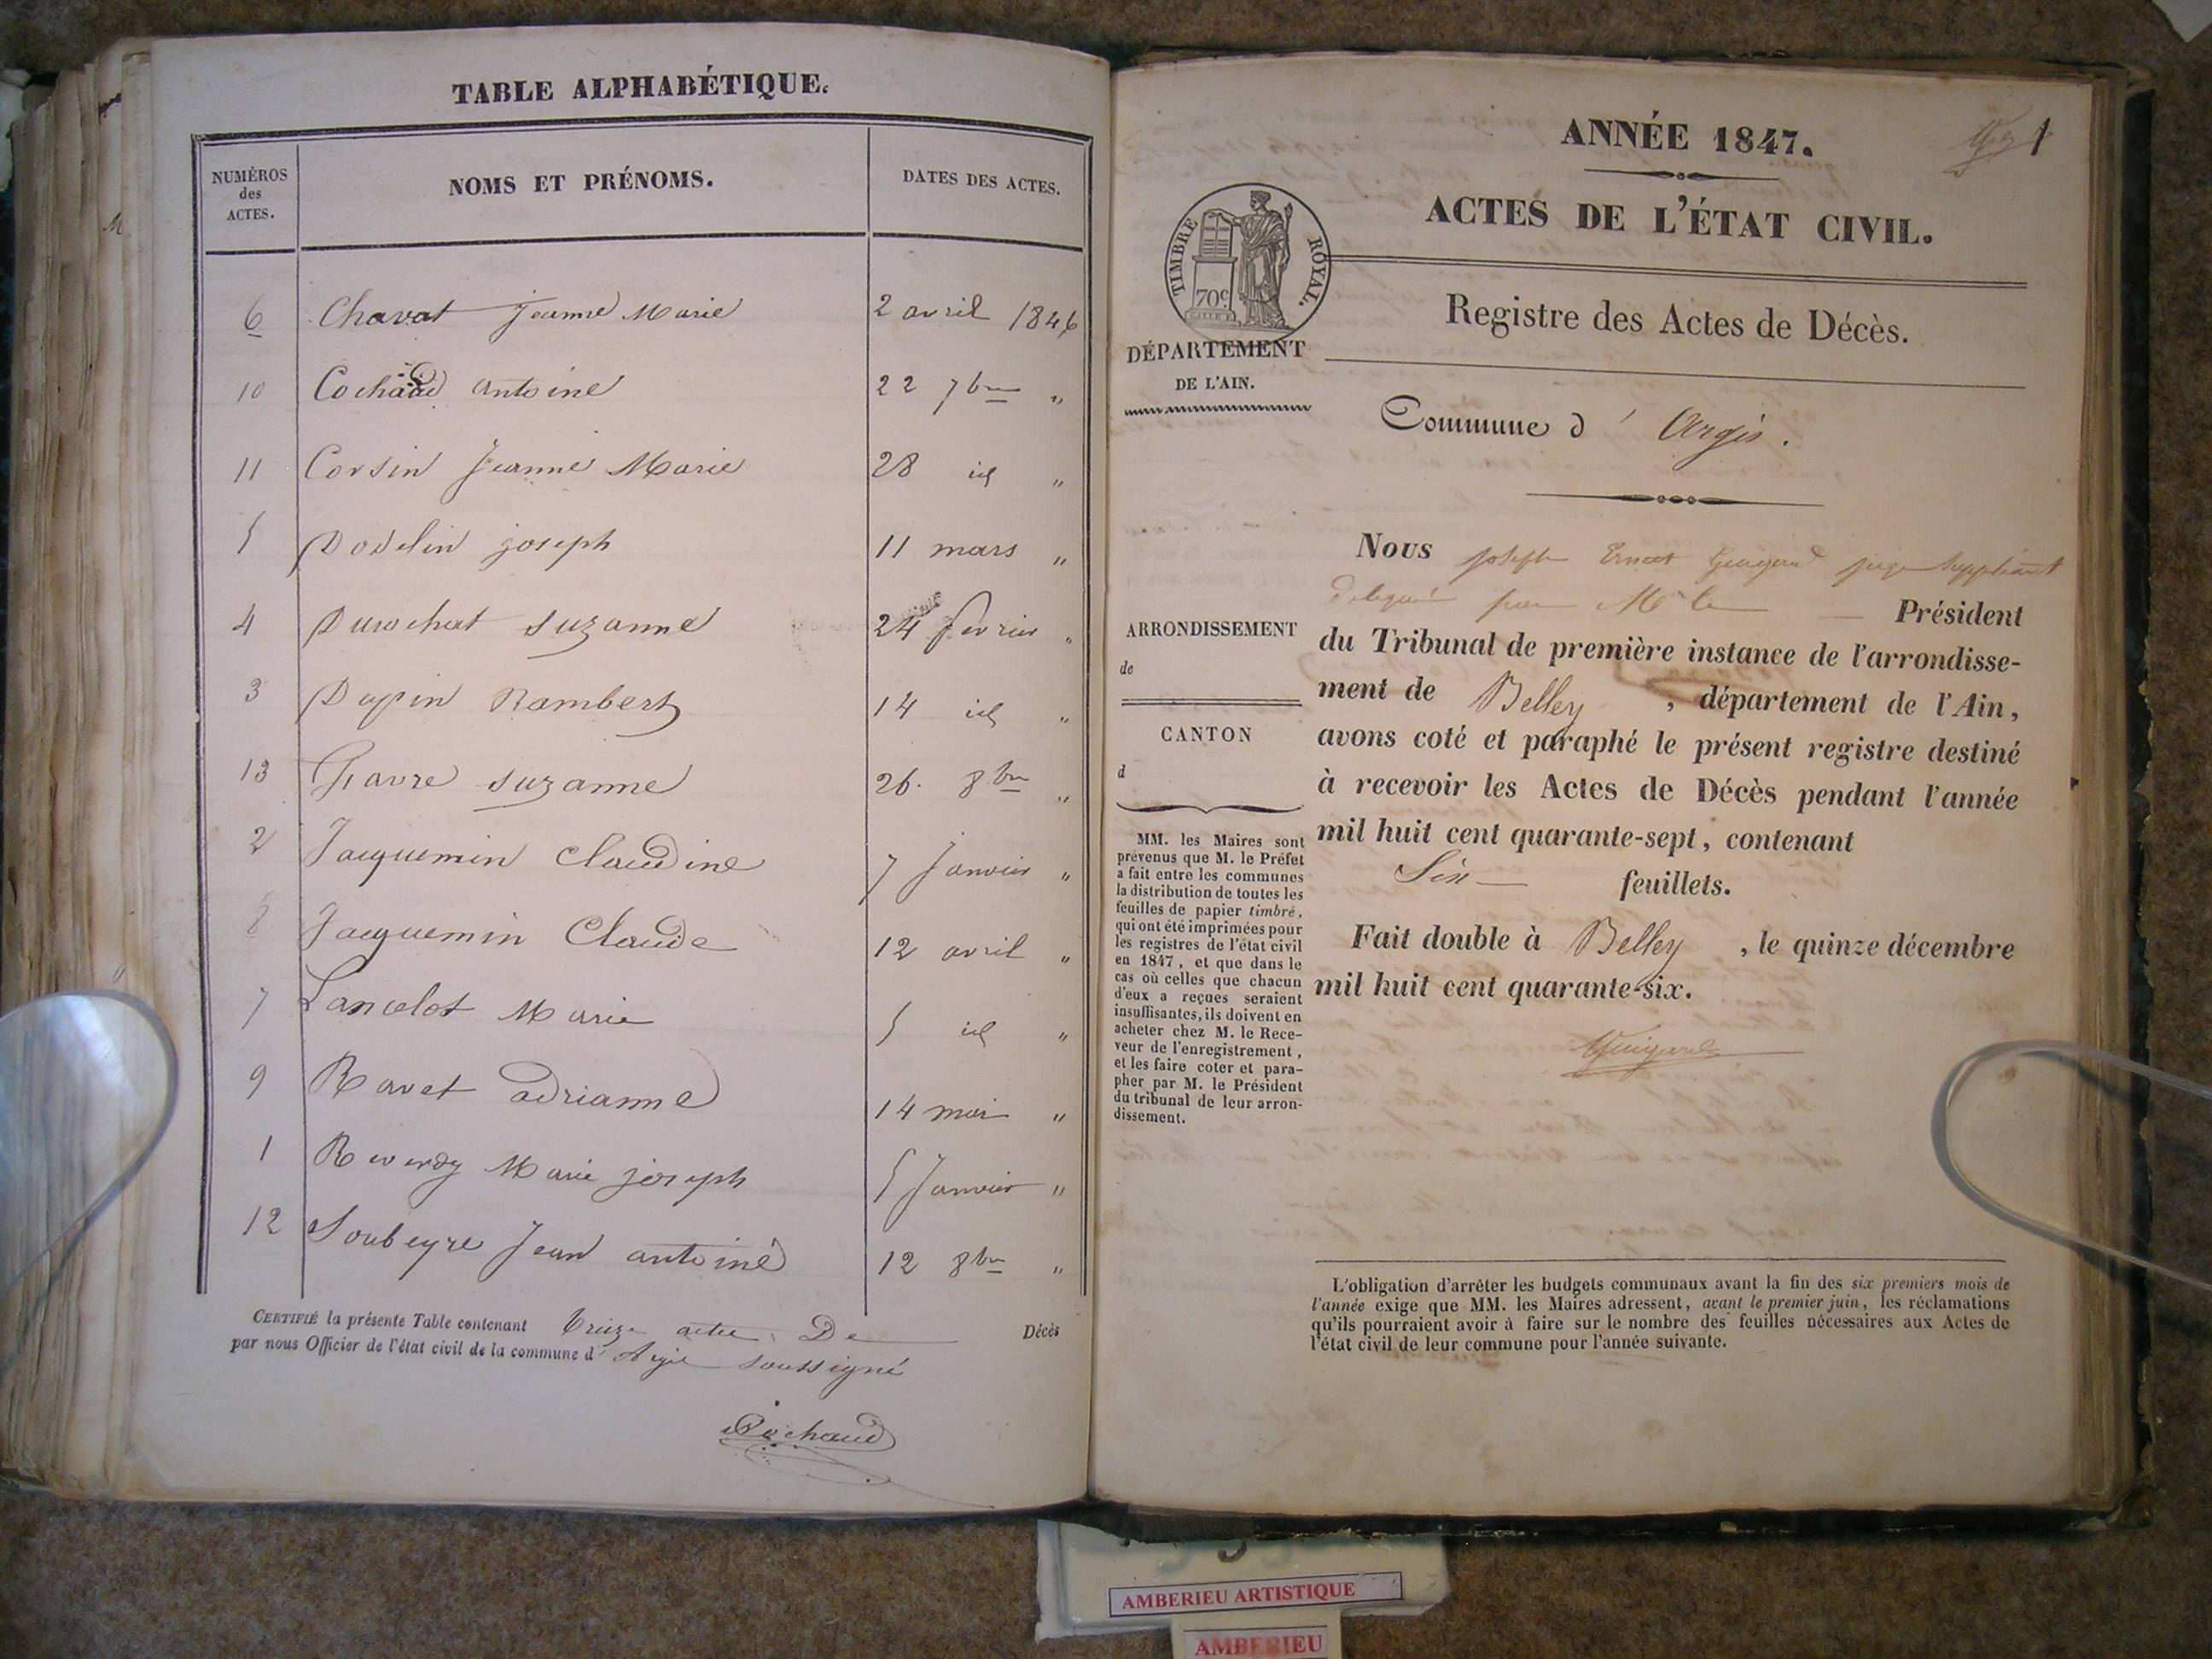 TABLE ALPHABÉTIQUE.
NUMÉROS des ACTES. NOMS ET PRÉNOMS. DATES DES ACTES.
6 Chavat Jeanne Marie 2 avril 1846
10 Antoine 22 7bre "
11 Corsin Jeanne Marie 28 id "
5 Dodelin joseph 11 mars "
4 Durochat Suzanne 24 fevrier "
3 Dupin Rambert 14 id "
13 Favre Suzanne 26. 8bre "
2 Jacquemin Claudine 7 Janvier "
8 Jacquemin Claude 12 avril "
7 Lancelot Marie 5 id "
9 Ravet adrianne 14 mai "
1 Reverdy Marie joseph 5 Janvier "
12 Soubeyre Jean antoine 12 8bre "
CERTIFIÉ la présente Table contenant treize actes De Décès
par nous Officier de l'état civil de la commune d' Argis soussigné
ANNÉE 1847.
1
ACTES DE L'ÉTAT CIVIL.
TIMBRE ROYAL.
70c
Registre des Actes de Décès.
DÉPARTEMENT
DE L'AIN.
Commune d' Argis.
Nous joseph Ernest Guigard juge Suppléant
délégué par Mr le Président
ARRONDISSEMENT
de
du Tribunal de première instance de l'arrondisse-
ment de Belley, département de l'Ain,
CANTON
d
avons coté et paraphé le présent registre destiné
à recevoir les Actes de Décès pendant l'année
mil huit cent quarante-sept, contenant
Six feuillets.
Fait double à Belley, le quinze décembre
mil huit cent quarante-six.
MM. les Maires sont
prévenus que M. le Préfet
a fait entre les communes
la distribution de toutes les
feuilles de papier timbré,
qui ont été imprimées pour
les registres de l'état civil
en 1847, et que dans le
cas où celles que chacun
d'eux a reçues seraient
insuffisantes, ils doivent en
acheter chez M. le Rece-
veur de l'enregistrement,
et les faire coter et para-
pher par M. le Président
du tribunal de leur arron-
dissement.
L'obligation d'arrêter les budgets communaux avant la fin des six premiers mois de
l'année exige que MM. les Maires adressent, avant le premier juin, les réclamations
qu'ils pourraient avoir à faire sur le nombre des feuilles nécessaires aux Actes de
l'état civil de leur commune pour l'année suivante.
AMBERIEU ARTISTIQUE
AMBERIEU